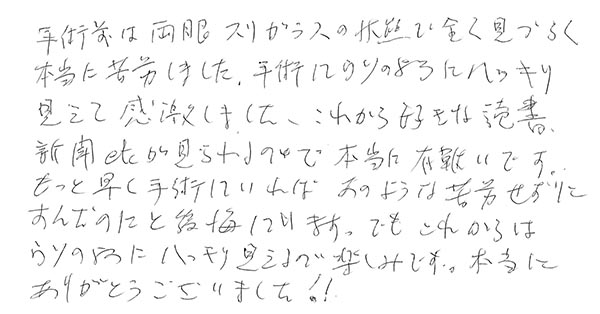 手術前は両眼スリガラスの状態で全く見づらく
本当に苦労しました。手術にてウソのようにハッキリ
見えて感激しました、これから好きな読書、
新聞etcが見られるので本当に有難いです。
もっと早く手術していれば あのような苦労せずに
すんだのにと後悔しております。でも これからは
ウソのようにハッキリ見えるので楽しみです。本当に
ありがとうございました!!